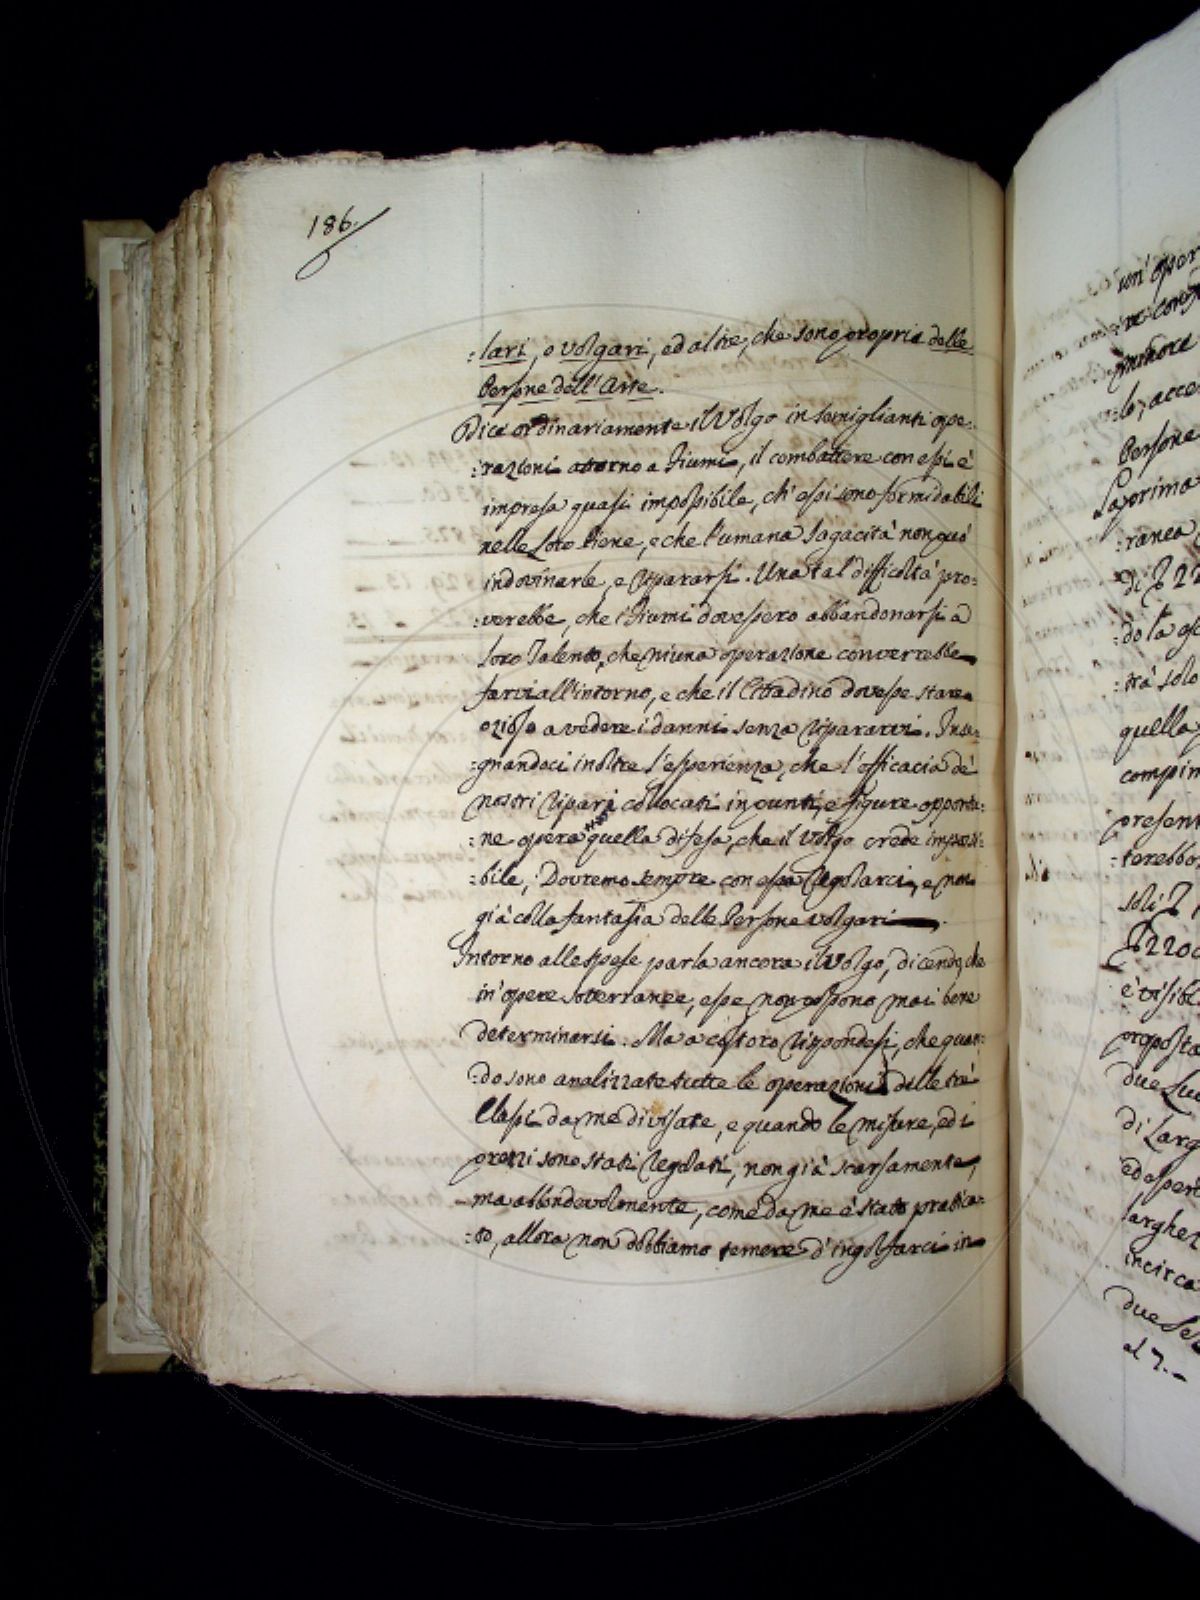 186.
:lari, o volgari, ed altre, che sono proprie delle
Persone dell'Arte.
Dice ordinariamente il Volgo in somiglianti ope:
:razioni attorno a Fiumi, il combattere con essi è
impresa quasi impossibile, ch'essi sono formidabili
nelle Loro Piene, e che l'umana Sagacità non può
indovinarle, e ripararsi. Una tal difficoltà pro:
:verebbe, che i Fiumi dovessero abbandonarsi a
loro Talento, che niuna operazione converrebbe
farvi all'intorno, e che il Cittadino dovesse stare
ozioso a vedere i danni senza ripararvi. Inse:
:gnandoci inoltre l'esperienza, che l'efficacia de'
nostri ripari collocati in punti, e figure opportu:
:ne opera quella difesa, che il Volgo crede impossi:
:bile; Dovremo sempre con essa regolarci, e non
già colla fantasia delle Persone volgari.
Intorno alle spese parla ancora il Volgo, dicendo, che
in opere sotterranee, esse non possono mai bene
determinarsi. Ma a costoro rispondesi, che quan:
:do sono analizzate tutte le operazioni delle trè
Classi da me divisate, e quando le misure, ed i
prezzi sono stati regolati, non già scarsamente,
ma abbondevolmente, come da me è stato pratica:
:to, allora non dobbiamo temere d'ingolfarci in
un'oper
minore
:lo, acce
Persone
La prima
:ranea
:do la
:trà solo
quella
compim
present
:terebbo
soli
è visib
proposta
due Lu
di Larg
ed esser
larghez
incirca
due
al 7.